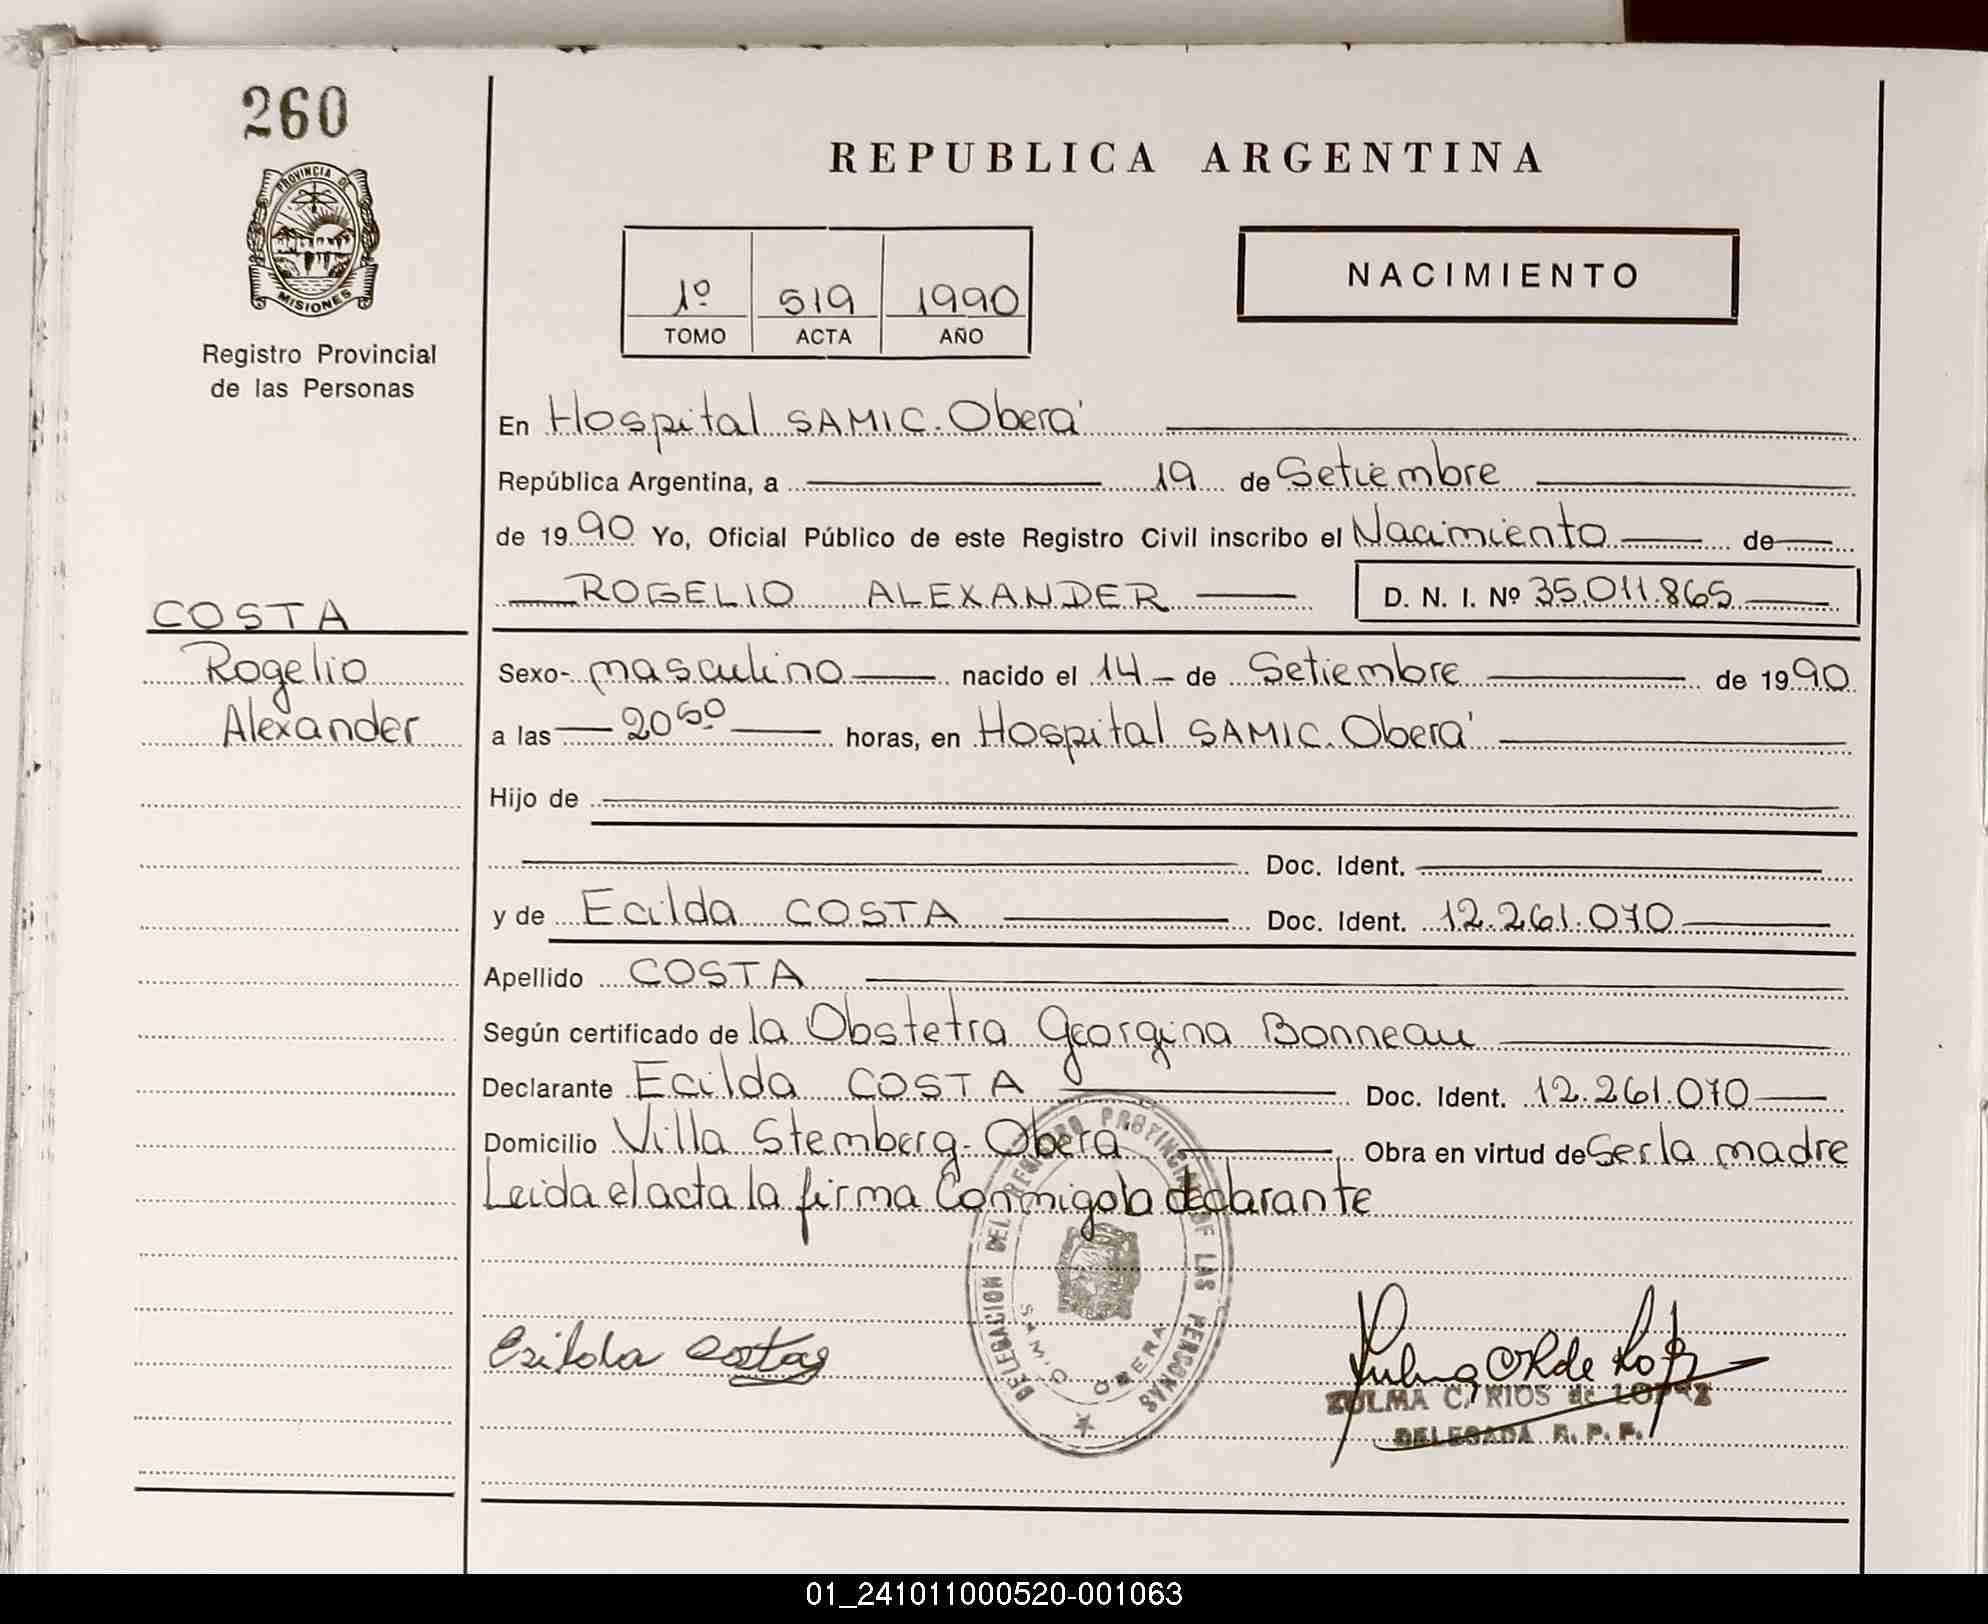 260
PROVINCIA DE
MISIONES
Registro Provincial
de las Personas
REPUBLICA ARGENTINA
1º 519 1990
TOMO ACTA AÑO
NACIMIENTO
En Hospital SAMIC. Oberá
República Argentina, a 19 de Setiembre
de 1990 Yo, Oficial Público de este Registro Civil inscribo el Nacimiento de
ROGELIO ALEXANDER D. N. I. Nº 35.011.865
COSTA
Rogelio
Alexander
Sexo- masculino nacido el 14 - de Setiembre de 1990
a las 20 50 horas, en Hospital SAMIC. Oberá
Hijo de
Doc. Ident.
y de Ecilda COSTA Doc. Ident. 12.261.070
Apellido COSTA
Según certificado de la Obstetra Georgina Bonneau
Declarante Ecilda COSTA Doc. Ident. 12.261.070
Domicilio Villa Stemberg - Oberá Obra en virtud de Ser la madre
Leida el acta la firma Conmigo la declarante
DELEGACION DEL REGISTRO PROVINCIAL DE LAS PERSONAS
SAMIC OBERA
Esilda Costas
ZULMA C. RIOS de LOPEZ
DELEGADA R. P. P.
01_241011000520-001063